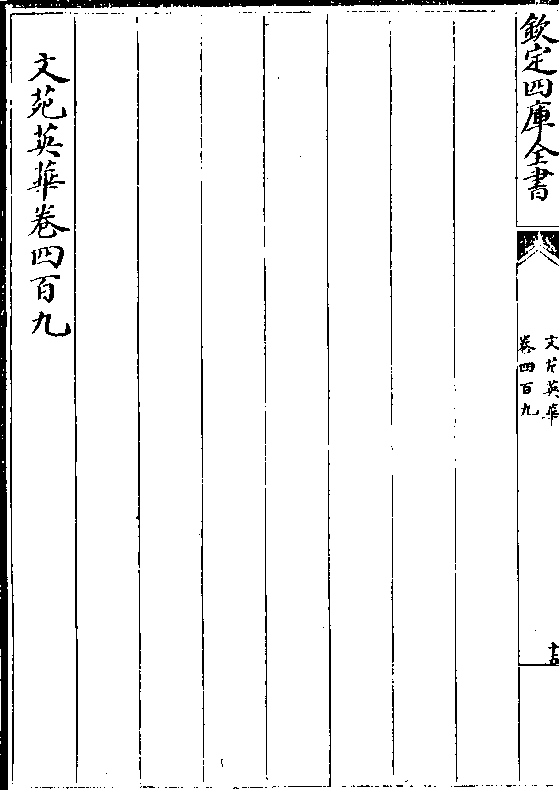 欽定四庫全書
文苑英華
卷四百九
十四
文苑英華卷四百九